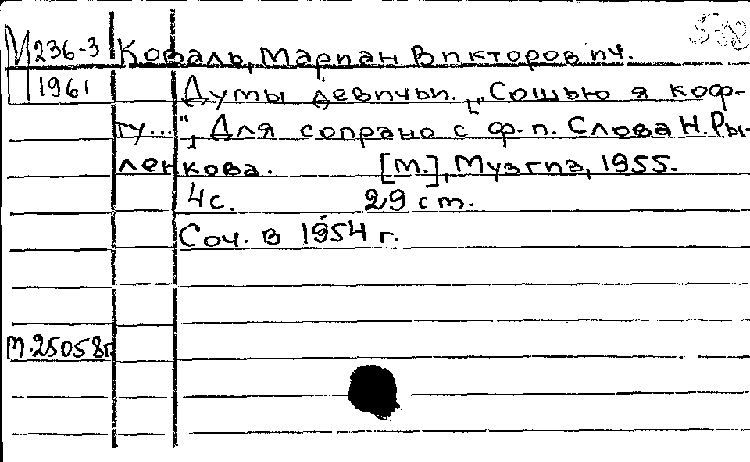 М 236-3 Коваль, Мариан Викторович.
1961 Думы девичьи. ["Сошью я коф-
ту..."], Для сопрано с ф-п. Слова Н. Ры-
ленкова. [М.], Музгиз, 1955.
4 с. 29 см.
Соч. в 1954 г.
М.25058г